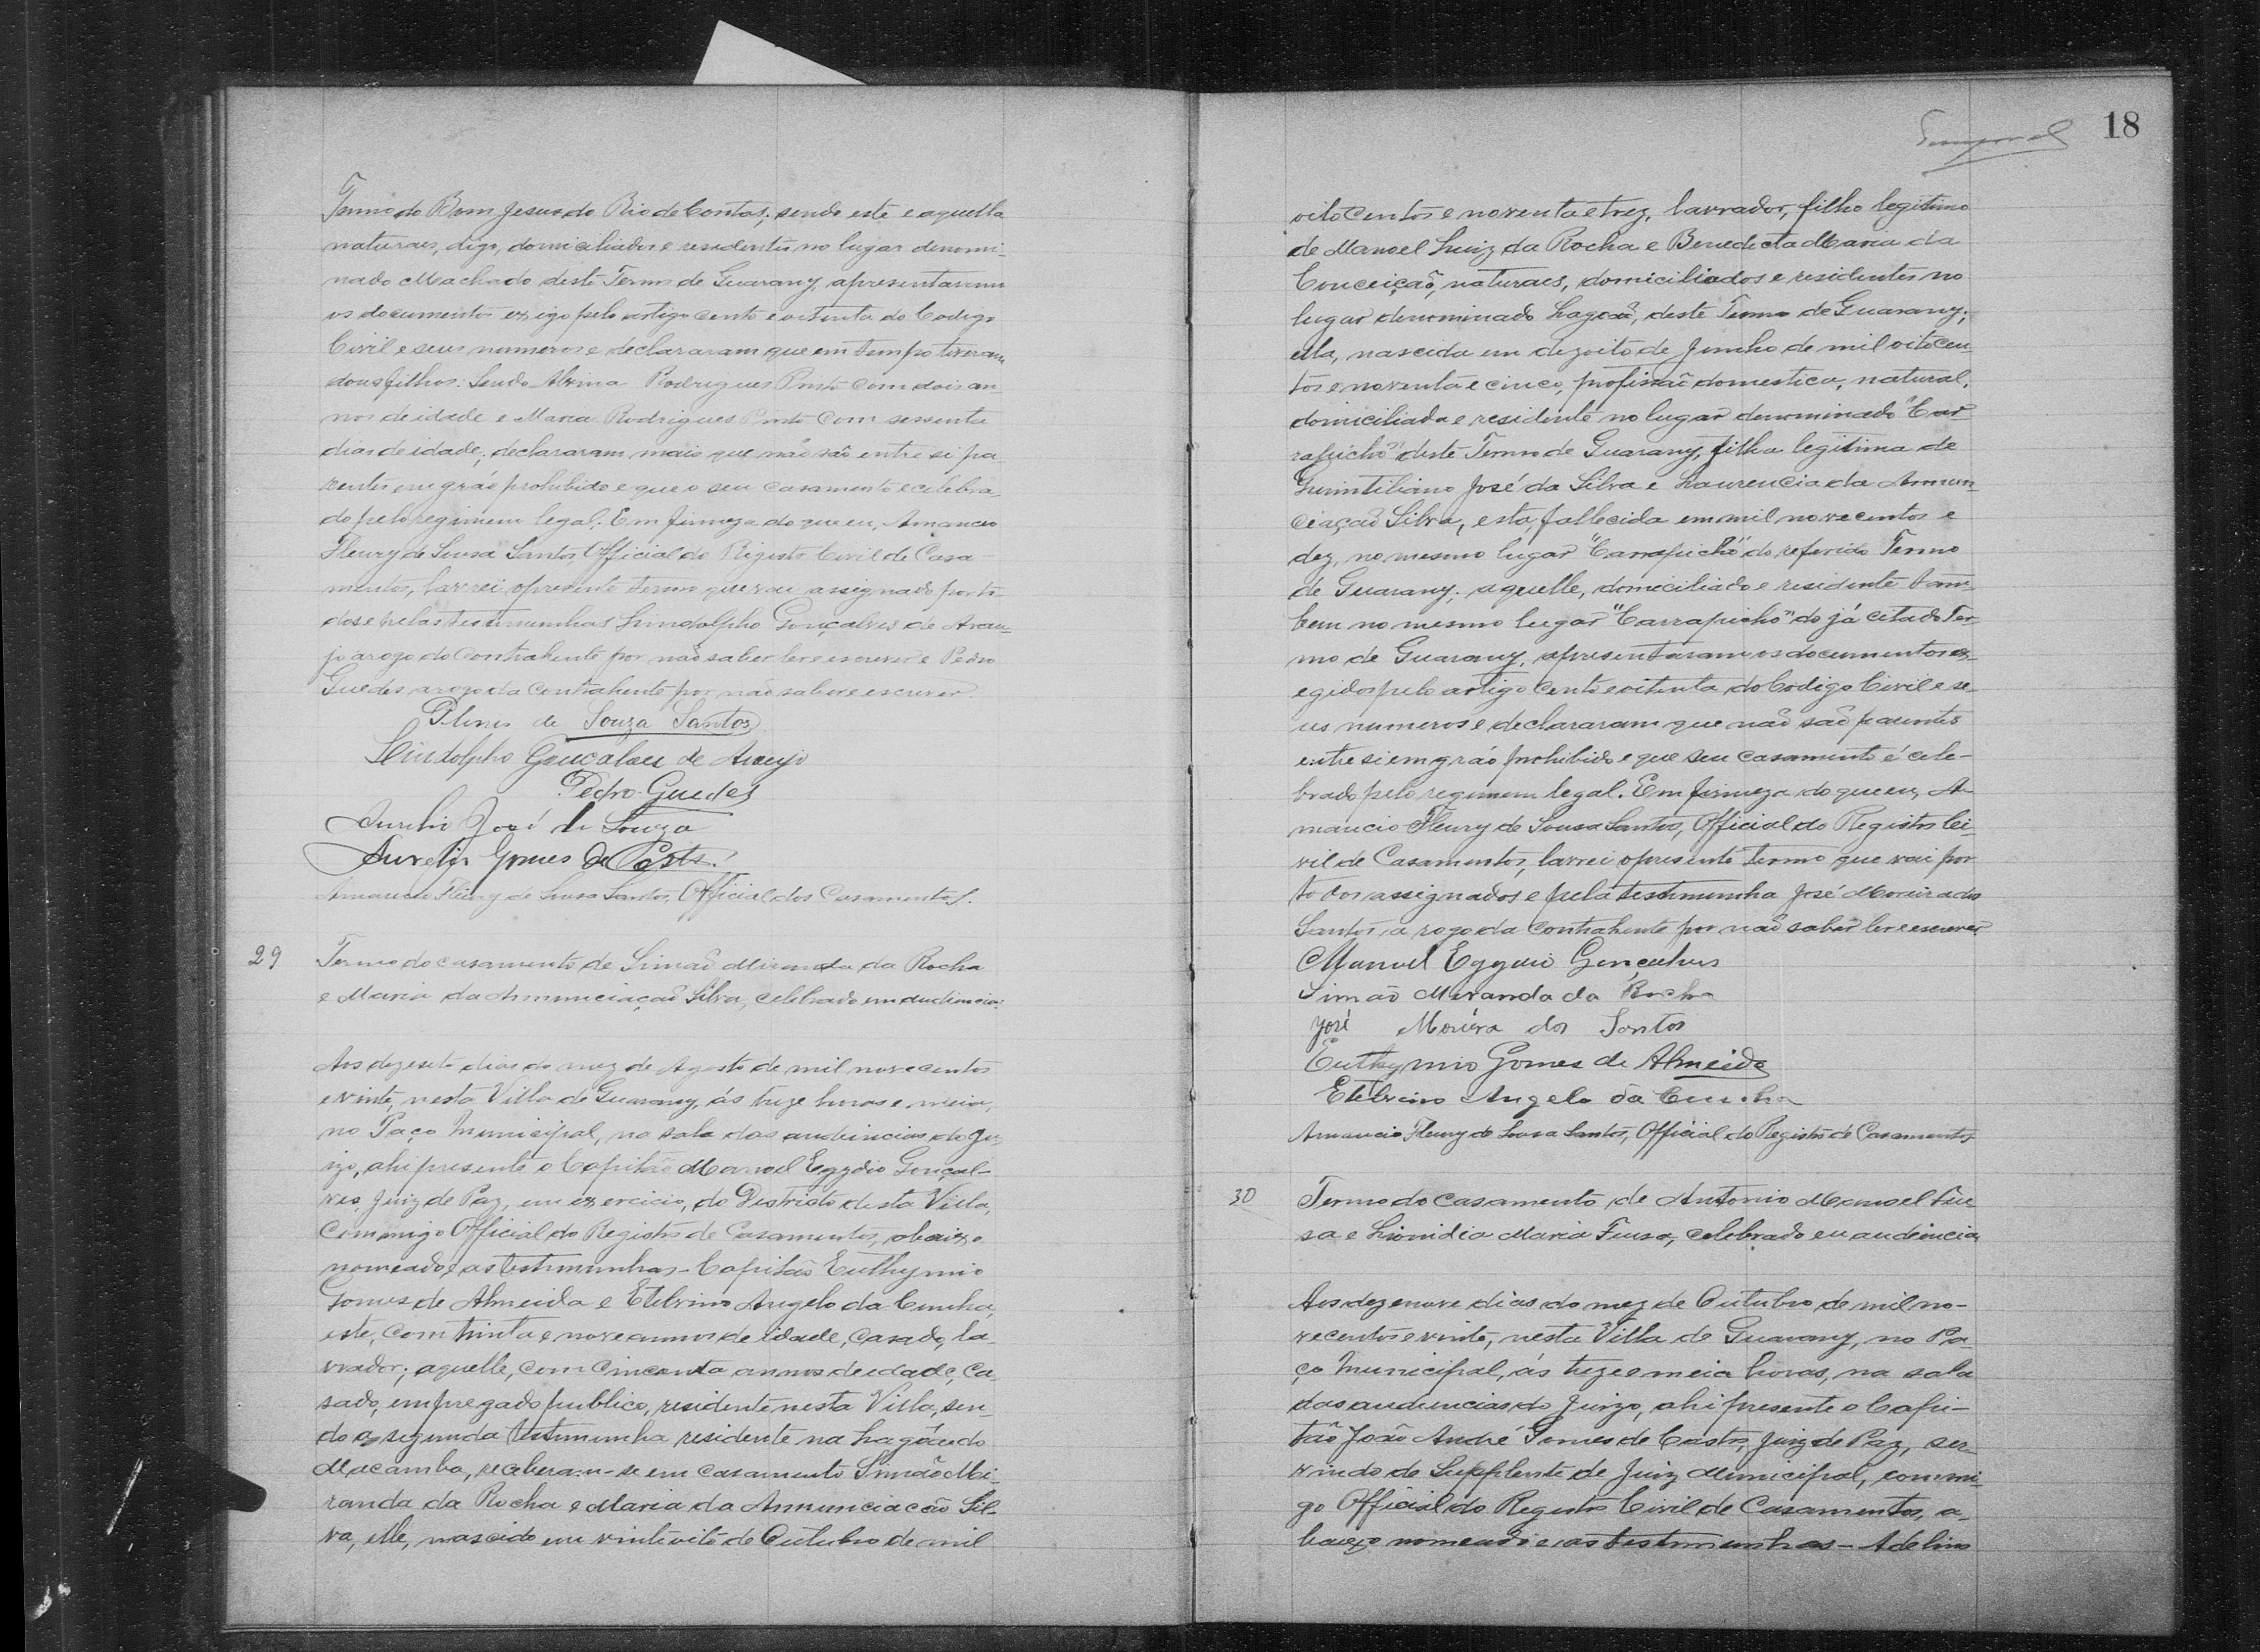 Termo do Bom Jesus do Rio de Contas; sendo este e aquella
naturaes, digo, domiciliados e residentes no lugar denomi-
nado Machado deste Termo de Guarany, apresentaram
os documentos exigo pelo artigo cento e oitenta do Codigo
Civil e seus numeros e declararam que em tempo tiveram
dous filhos: Sendo Rodrigues Pinto com dois an-
nos de idade e Maria Rodrigues Pinto com sessenta
dias de idade; declararam mais que não são entre si pa-
rentes em gráo prohibido e que o seu casamento é celebra-
do pelo regimem legal. Em firmeza do que eu, Amancio
Fleury de Sousa Santos, Official do Registo Civil de Casa-
mentos, lavrei o presente termo que vai assignado por to-
dos e pelas testimunhas Lindolpho Gonçalves de Arau-
jo arogo do contrahente por não saber ler e escrever e Pedro
Guedes arogo da contrahente por não saber e escrever.
Plinio de Souza Santos
Lindolpho Goncalves de Araujo
Pedro Guedes
Aurelio José de Souza
Aurelio Gomes de
Amancio Fleury de Sousa Santos, Official dos Casamentos.
29 Termo do casamento de Simão Miranda da Rocha
e Maria da Annunciação Silva, celebrado em audiencia.
Aos dezesete dias do mez de Agosto de mil novecentos
e vinte, nesta Villa de Guarany, ás treze horas e meia,
no Paço Municipal, na sala das audiencias do Ju-
izo, ahi presente o Capitão Manoel Egydio Gonçal-
ves, Juiz de Paz, em exercicio, do Districto desta Villa,
commigo Official do Registo de Casamentos, abaixo
nomeado e as testimunhas - Capitão Euthymio
Gomes de Almeida e Etelvino Angelo da Cunha,
este, com trinta e nove annos de idade, casado, la-
vrador; aquelle, com cincoenta annos de idade, ca-
sado, empregado publico, residente nesta Villa, sen-
do a segunda testimunha residente na Lagôa do
Macambo, receberam-se em casamento Simão Mi-
randa da Rocha e Maria da Annunciacção Sil-
va, elle, nascido em vinte oito de Outubro de mil
18
oitocentos e noventa e trez, lavrador, filho legitimo
de Manoel Luiz da Rocha e Benedicta Maria da
Conceição, naturaes, domiciliados e residentes no
lugar denominado Lagoa, deste Termo de Guarany;
ella, nascida em dezoito de Junho de mil oitocen-
tos e noventa e cinco, profissão domestica, natural,
domiciliada e residente no lugar denominado "Car-
rapicho" deste Termo de Guarany, filha legitima de
José da Silva e Laurencia da Annun-
ciação Silva, esta, fallecida em mil novecentos e
dez, no mesmo lugar "Carrapicho" do referido Termo
de Guarany; aquelle, domiciliado e residente tam-
bem no mesmo lugar "Carrapicho" do já citado Ter-
mo de Guarany, apresentaram os documentos ex-
egidos pelo artigo cento e oitenta do Codigo Civil e se-
us numeros e declararam que não são parentes
entre si em gráo prohibido e que seu casamento é cele-
brado pelo regimem legal. Em firmeza do que eu, A-
mancio Fleury de Sousa Santos, Official do Registo Ci-
vil de Casamentos, lavrei o presente termo que vai por
todos assignados e pela testimunha José Moreira dos
Santos, a rogo da contrahente por não saber ler e escrever.
Manoel Egydio Gonçalves
Simão Miranda da Rocha
José Moreira dos Santos
Euthymio Gomes de Almeida
Etelvino Angelo da Cunha
Amancio Fleury de Sousa Santos, Official do Registo de Casamentos
30 Termo do Casamento de Antonio Manoel Fiu-
sa e Lionidia Maria Fiusa, celebrado em audiencia
Aos dezenove dias do mez de Outubro de mil no-
vecentos e vinte, nesta Villa de Guarany, no Pa-
ço Municipal, ás treze e meia horas, na sala
das audiencias do Juizo, ahi presente o Capi-
tão João André Gomes de Castro, Juiz de Paz, ser-
vindo de Supplente de Juiz Municipal, commi-
go Official do Registo Civil de Casamentos, a-
baixo nomeado e as testimunhas - Adelino